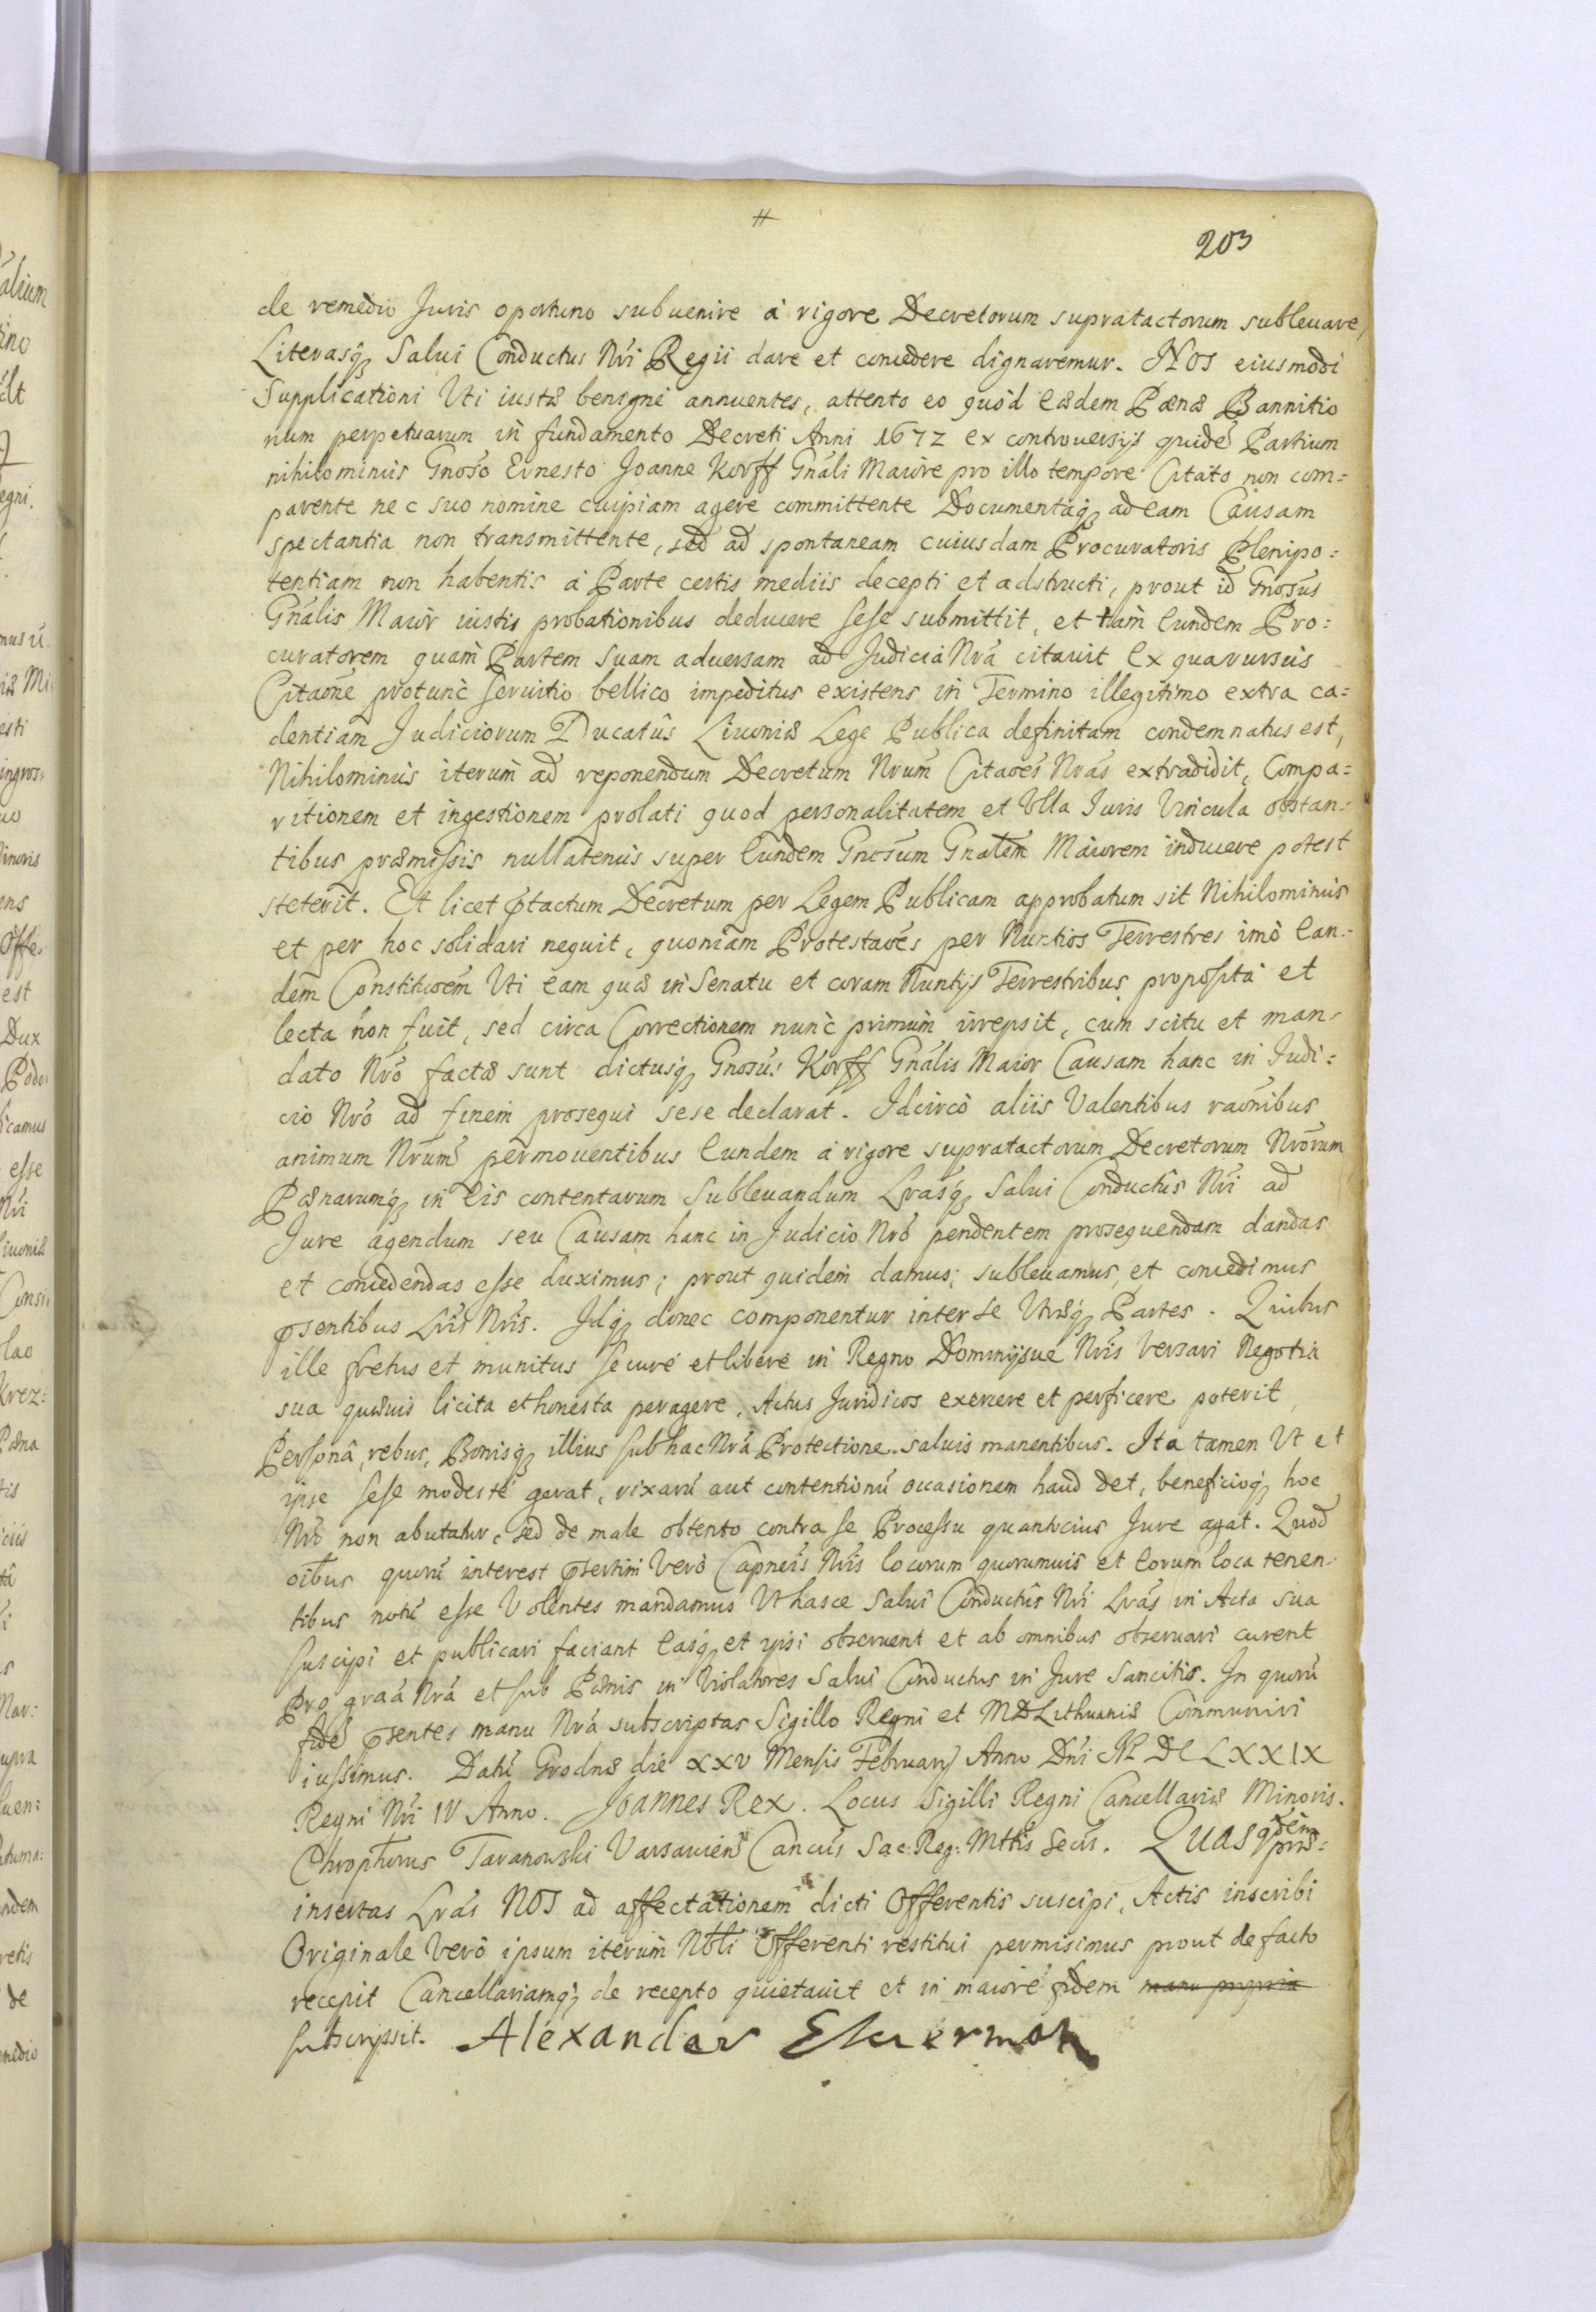 #
203
de remedio Juris oportuno subuenire à rigore Decretorum supratactorum subleuare,
Literasq3 Salui Conductus Nri Regii dare et concedere dignaremur. NOS eiusmodi
Supplicationi Uti iustæ benignè annuentes, attento eo quòd eædem Pænæ Bannitio
num perpetuarum in fundamento Decreti Anni 1672 ex controuersijs quidē Partium
nihilominùs Gnoso Ernesto Joanne Korff Gnāli Maiore pro illo tempore Citato non com=
parente nec suo nomine cuipiam agere committente Documentaq3 ad eam Causam
spectantia non transmittente, sed ad spontaneam cuiusdam Procuratoris Plenipo=
tentiam non habentis à Parte certis mediis decepti et adstructi, prout id Gnosus
Gnālis Maior iustis probationibus deducere sese submittit, et tàm eundem Pro=
curatorem quàm Partem suam aduersam ad Judicia Nrā citauit Ex qua rursùs
Citaōne protunc seruitio bellico impeditus existens in Termino illegitimo extra ca=
dentiam Judiciorum Ducatûs Liuoniæ Lege Publica definitam condemnatus est,
Nihilominùs iterùm ad reponendum Decretum Nrūm Citaōēs Nrās extradidit, Compa=
ritionem et ingestionem prolati quod personalitatem et Ulla Juris Vincula obstan=
tibus præmissis nullatenùs super Eundem Gnosum Gnālem Maiorem inducere potest
steterit. Et licet p̄tactum Decretum per Legem Publicam approbatum sit Nihilominùs
et per hoc solidari nequit, quoniam Protestaōēs per Nuntios Terrestres imò ean=
dem Constituōēm Uti eam quæ in Senatu et coram Nuntijs Terrestribus proposita et
lecta non fuit, sed circa Correctionem nunc primùm irrepsit, cum scitu et man=
dato Nrō factæ sunt dictusq3 Gnosus Korff Gnālis Maior Causam hanc in Judi=
cio Nrō ad finem prosequi sese declarat. Idcircò aliis Valentibus raōnibus
animum Nrūm permouentibus Eundem à rigore supratactorum Decretorum Nrōrum
Pænarumq3 in Eis contentarum Subleuandum Lrasq3 Salui Conductûs Nrī ad
Jure agendum seu Causam hanc in Judicio Nrō pendentem prosequendam dandas
et concedendas esse duximus; prout quidem damus; subleuamus, et concedimus
p̄sentibus Lrīs Nrīs. Idq3 donec componentur inter se Utræq3 Partes. Quibus
ille fretus et munitus securè et liberè in Regno Dominijsue Nrīs Versari Negotia
sua quæuis licita et honesta peragere, Actus Juridicos exercere et perficere poterit,
Personâ, rebus, Bonisq3 illius sub hac Nrā Protectione saluis manentibus. Ita tamen Ut et
ipse sese modestè gerat, rixarū aut contentionū occasionem haud det, beneficioq3 hoc
Nrō non abutatur, sed de male obtento contra se Processu quantocius Jure agat. Quod
oībus quorū interest p̄sertim Verò Capneis Nrīs locorum quorumuis et Eorum loca tenen=
tibus notū esse Volentes mandamus Ut hasce Salui Conductûs Nrī Lrās in Acta sua
suscipi et publicari faciant Easq3 et ipsi obseruent et ab omnibus obseruari curent
Pro graā Nrā et sub Pænis in Violatores Salui Conductus in Jure Sancitis. In quorū
fidē p̄sentes manu Nrā subscriptas Sigillo Regni et MDLithuaniæ Communiri
iussimus. Datū Grodnæ die XXV Mensis Februarij Anno Dni M DC LXXIX
Regni Nrī IV Anno. Joannes Rex. Locus Sigilli Regni Cancellariæ Minoris.
Chrophorus Taranowski Varsauien Cancus Sac: Reg: Mttis Secrs. Quasq3dem præ=
insertas Lrās NOS ad affectationem dicti Offerentis suscipi, Actis inscribi
Originale Verò ipsum iterùm Nbli Offerenti restitui permisimus prout de facto
recepit Cancellariamq3 de recepto quietauit et in maiorē fidem manu propria
subscripsit. Alexander Ekkerman